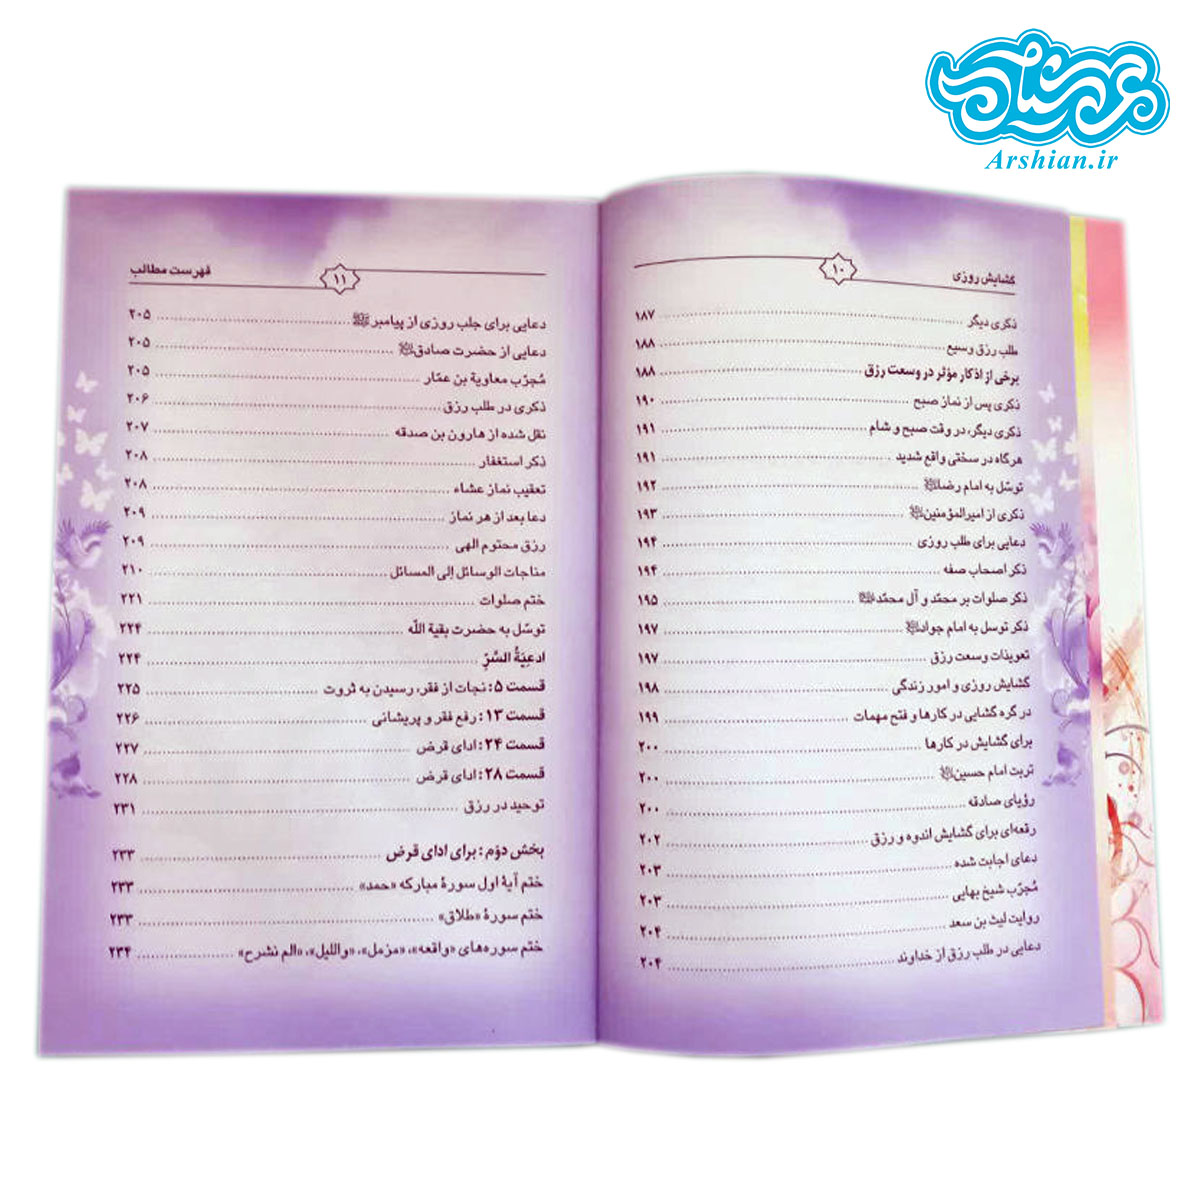 عرشیان
Arshian.ir
گشایش روزی
۱۰
ذکری دیگر ۱۸۷
طلب رزق وسیع ۱۸۸
برخی از اذکار مؤثر در وسعت رزق ۱۸۸
ذکری پس از نماز صبح ۱۹۰
ذکری دیگر، در وقت صبح و شام ۱۹۱
هرگاه در سختی واقع شدید ۱۹۱
توسّل به امام رضا ۱۹۲
ذکری از امیرالمؤمنین ۱۹۳
دعایی برای طلب روزی ۱۹۴
ذکر اصحاب صفه ۱۹۴
ذکر صلوات بر محمّد و آل محمّد ۱۹۵
ذکر توسل به امام جواد ۱۹۷
تعویذات وسعت رزق ۱۹۷
گشایش روزی و امور زندگی ۱۹۸
در گره گشایی در کارها و فتح مهمات ۱۹۹
برای گشایش در کارها ۲۰۰
تربت امام حسین ۲۰۰
رؤیای صادقه ۲۰۰
رقعه‌ای برای گشایش اندوه و رزق ۲۰۲
دعای اجابت شده ۲۰۳
مُجرّب شیخ بهایی ۲۰۳
روایت لیث بن سعد ۲۰۴
دعایی در طلب رزق از خداوند ۲۰۴
فهرست مطالب
۱۱
دعایی برای جلب روزی از پیامبر ۲۰۵
دعایی از حضرت صادق ۲۰۵
مُجرّب معاویة بن عمّار ۲۰۵
ذکری در طلب رزق ۲۰۶
نقل شده از هارون بن صدقه ۲۰۷
ذکر استغفار ۲۰۸
تعقیب نماز عشاء ۲۰۸
دعا بعد از هر نماز ۲۰۹
رزق محتوم الهی ۲۰۹
مناجات الوسائل إلی المسائل ۲۱۰
ختم صلوات ۲۲۱
توسّل به حضرت بقیة اللّه ۲۲۴
ادعِیَةُ السَّرِّ ۲۲۴
قسمت ۵: نجات از فقر، رسیدن به ثروت ۲۲۵
قسمت ۱۳: رفع فقر و پریشانی ۲۲۶
قسمت ۲۴: ادای قرض ۲۲۷
قسمت ۲۸: ادای قرض ۲۲۸
توحید در رزق ۲۳۱
بخش دوّم: برای ادای قرض ۲۳۳
ختم آیهٔ اول سورهٔ مبارکه «حمد» ۲۳۳
ختم سورهٔ «طلاق» ۲۳۳
ختم سوره‌های «واقعه»، «مزمل»، «واللیل»، «الم نشرح» ۲۳۴